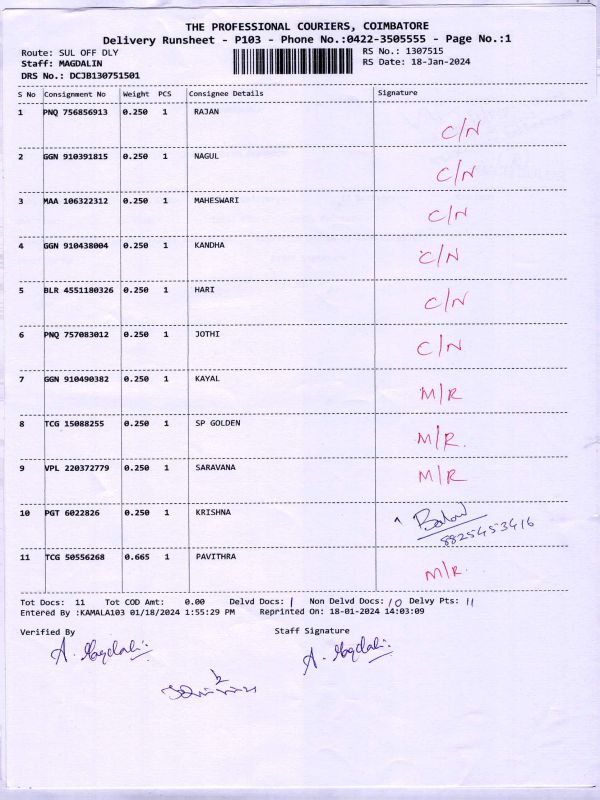 THE PROFESSIONAL COURIERS, COIMBATORE
Delivery Runsheet - P103 - Phone No.:0422-3505555 - Page No.:1
Route: SUL OFF DLY RS No.: 1307515
Staff: MAGDALIN RS Date: 18-Jan-2024
DRS No.: DCJB130751501
S No Consignment No Weight PCS Consignee Details Signature
1 PNQ 756856913 0.250 1 RAJAN C/N
2 GGN 910391815 0.250 1 NAGUL C/N
3 MAA 106322312 0.250 1 MAHESWARI C/N
4 GGN 910438004 0.250 1 KANDHA C/N
5 BLR 4551180326 0.250 1 HARI C/N
6 PNQ 757083012 0.250 1 JOTHI C/N
7 GGN 910490382 0.250 1 KAYAL M/R
8 TCG 15088255 0.250 1 SP GOLDEN M/R.
9 VPL 220372779 0.250 1 SARAVANA M/R
10 PGT 6022826 0.250 1 KRISHNA
8825453416
11 TCG 50556268 0.665 1 PAVITHRA M/R.
Tot Docs: 11 Tot COD Amt: 0.00 Delvd Docs: 1 Non Delvd Docs: 10 Delvy Pts: 11
Entered By :KAMALA103 01/18/2024 1:55:29 PM Reprinted On: 18-01-2024 14:03:09
Verified By Staff Signature
A. Magdali A. Magdali